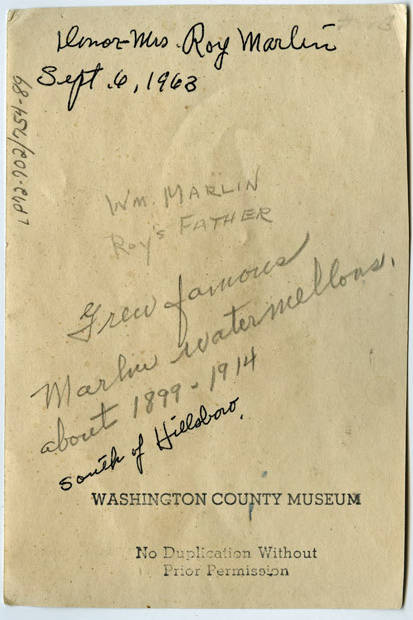 Donor - Mrs. Roy Marlin
Sept. 6, 1963
WM. MARLIN
ROY'S FATHER
Grew famous
Marlin watermellons.
about 1899 - 1914
South of Hillsboro.
WASHINGTON COUNTY MUSEUM
No Duplication Without
Prior Permission